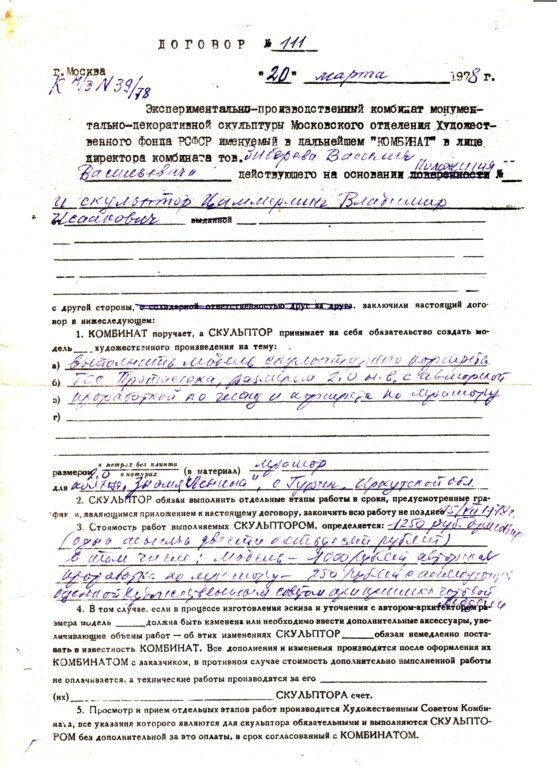 ДОГОВОР № 111
г. Москва "20" марта 1978 г.
К м/з N 39/78
Экспериментально-производственный комбинат монумен-
тально-декоративной скульптуры Московского отделения Художест-
венного фонда РСФСР именуемый в дальнейшем "КОМБИНАТ" в лице
директора комбината тов. Василия
Васильевича действующего на основании поверенности № Положения
и скульптор Циммерлинг Владимир
Исаакович выданной
с другой стороны, с солидарной ответственностью друг за друга, заключили настоящий дого-
вор в нижеследующем:
1. КОМБИНАТ поручает, а СКУЛЬПТОР принимает на себя обязательство создать мо-
дель художественного произведения на тему:
а) выполнить модель скульптурного портрета
б) ГСС размером 2,0 н.в. с авторской
в) проработкой по гипсу и по мрамору
г)
размером 2,0 в метрах без плинта в натурах (в материал) мрамор
для колхоза "Знамя Ленина", с. Иркутской обл.
2. СКУЛЬПТОР обязан выполнить отдельные этапы работы в сроки, предусмотренные гра-
фиком, являющимся приложением к настоящему договору, закончить всю работу не позднее 15/XII 1978г.
3. Стоимость работ выполняемых СКУЛЬПТОРОМ, определяется: 1250 руб.
(одна тысяча двести пятьдесят рублей)
в том числе: модель - 1000 рублей авторская
проработка по мрамору - 250 рублей с последующей
оценкой Художественным советом при приемке готовой
модели
4. В том случае, если в процессе изготовления эскиза и уточнения с автором-архитектором ра-
змера модель должна быть изменена или необходимо ввести дополнительные аксессуары, уве-
личивающие объемы работ — об этих изменениях СКУЛЬПТОР обязан немедленно поста-
вать в известность КОМБИНАТ. Все дополнения и изменения производятся после оформления их
КОМБИНАТОМ с заказчиком, в противном случае стоимость дополнительно выполненной работы
не оплачивается, а технические работы производятся за его
(их) СКУЛЬПТОРА счет.
5. Просмотр и прием отдельных этапов работ производится Художественным Советом Комби-
ната, все указания которого являются для скульптора обязательными и выполняются СКУЛЬПТО-
РОМ без дополнительной за это оплаты, в срок согласованный с КОМБИНАТОМ.